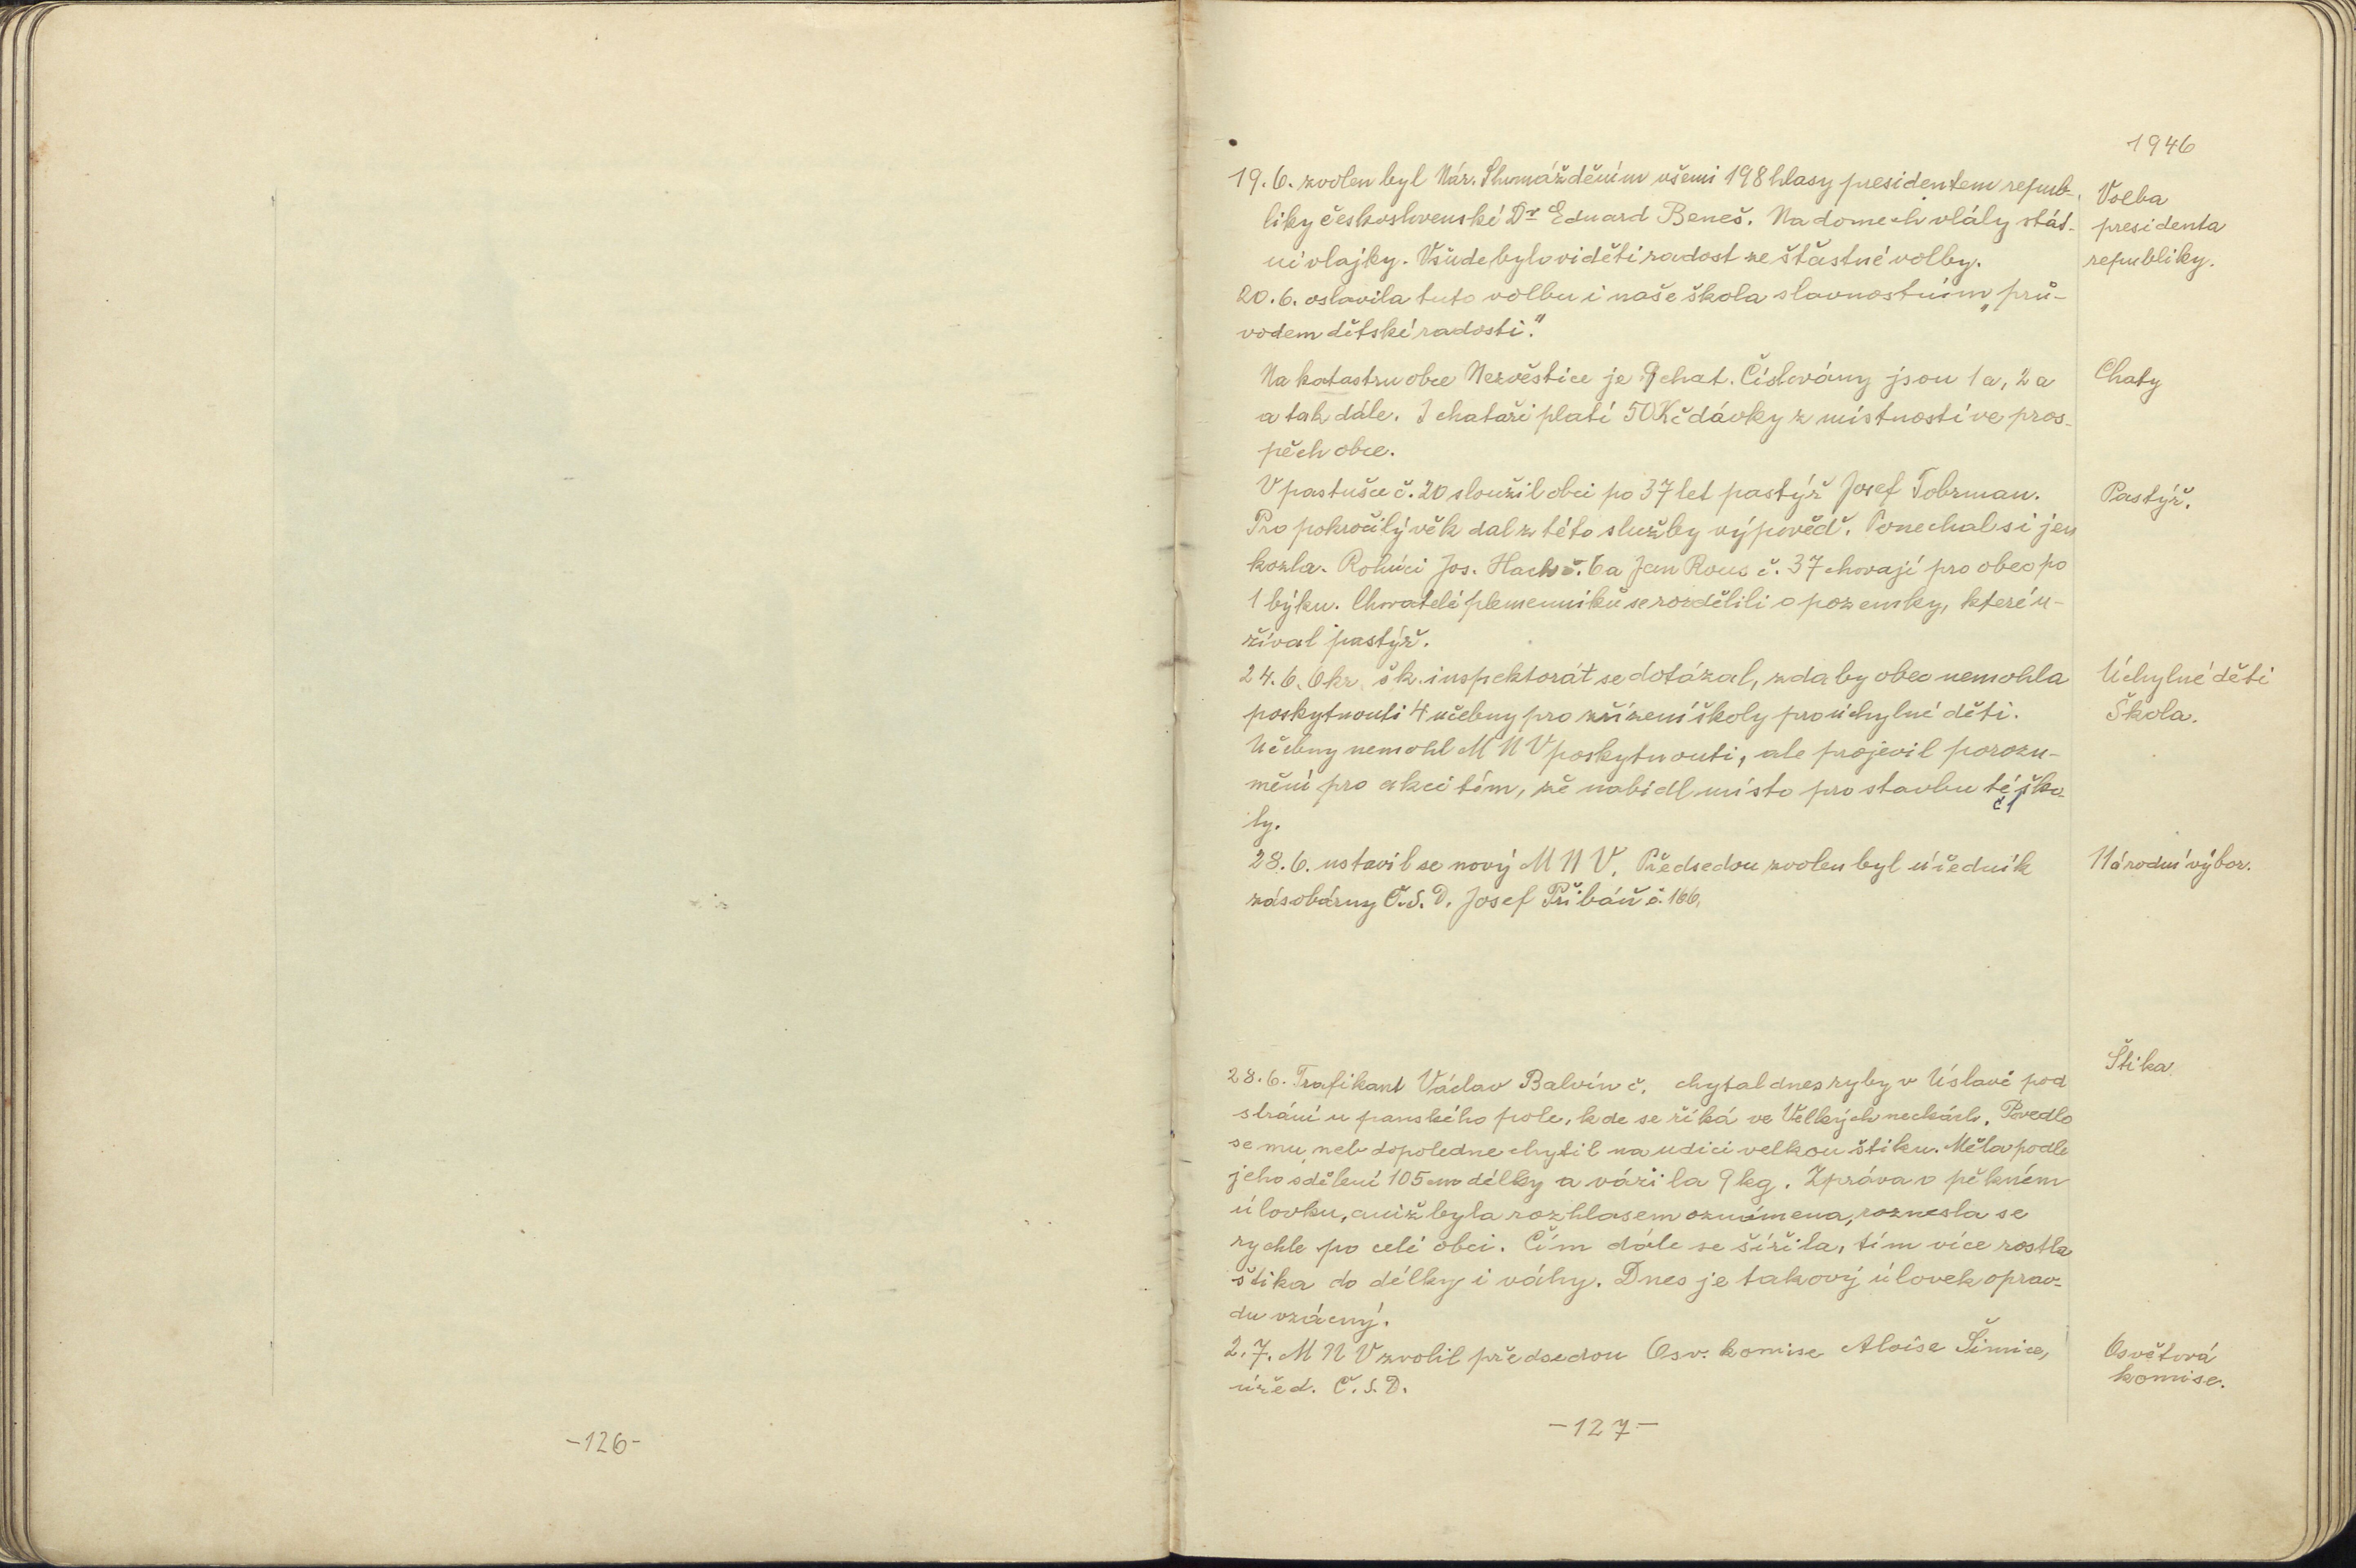 -126-
1946
19.6. zvolen byl Nár. Shromážděním všemi 198 hlasy presidentem repub-
liky československé Dr Eduard Beneš. Na domech vlály stát-
ní vlajky. Všude bylo viděti radost ze šťastné volby.
Volba
presidenta
republiky.
20.6. oslavila tuto volbu i naše škola slavnostním „prů-
vodem dětské radosti."
Na katastru obce Nezvěstice je 9 chat. Číslovány jsou 1a, 2a
Chaty
a tak dále. I chataři platí 50Kč dávky z místností ve pros-
pěch obce.
V pastušce č. 20 sloužil obci po 37 let pastýř Josef Tobrman.
Pastýř.
Pro pokročilý věk dal z této služby výpověď. Ponechal si jen
kozla. Rolníci Jos. Hach č. 6 a Jan Rous č. 37 chovají pro obec po
1 býku. Chovatelé plemenníků se rozdělili o pozemky, které u-
žíval pastýř.
24.6. Okr. šk. inspektorát se dotázal, zda by obec nemohla
Úchylné děti
poskytnouti 4 učebny pro zřízení školy pro úchylné děti.
Škola.
Učebny nemohl MNV poskytnouti, ale projevil porozu-
mění pro akci tím, že nabídl místo pro stavbu té ško-
ly.
28.6. ustavil se nový MNV. Předsedou zvolen byl úředník
Národní výbor.
zásobárny Č.S.D. Josef Přibáň č. 166.
28.6. Trafikant Václav Balvín č. chytal dnes ryby v Úslavě pod
Štika
strání u panského pole, kde se říká ve Velkých neckách. Povedlo
se mu, neb dopoledne chytil na udici velkou štiku. Měla podle
jeho sdělení 105 cm délky a vážila 9 kg. Zpráva o pěkném
úlovku, aniž byla rozhlasem oznámena, roznesla se
rychle po celé obci. Čím dále se šířila, tím více rostla
štika do délky i váhy. Dnes je takový úlovek oprav-
du vzácný.
2.7. MNV zvolil předsedou Osv. komise Aloise Šimice,
úřed. Č.S.D.
Osvětová
komise.
-127-